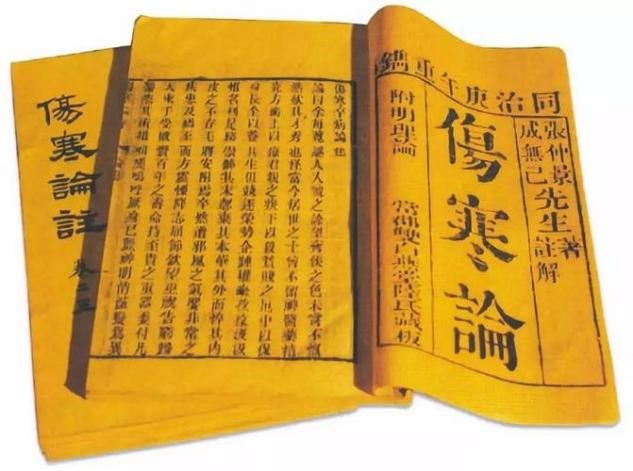 同治庚午重鐫
張仲景
成無己
先生
著
註解
傷寒論
附明理論
常郡雙白燕堂陸氏藏板
傷寒卒病論集
論曰余每覽越人入虢之診望齊侯之色未嘗不慨
然歎其才秀也怪當今居世之士曾不留神醫藥精
究方術上以療君親之疾下以救貧賤之厄中以保
身長全以養其生但競逐榮勢企踵權豪孜孜汲汲
惟名利是務崇飾其末忽棄其本華其外而悴其內
皮之不存毛將安附焉卒然遭邪風之氣嬰非常之
疾患及禍至而方震慄降志屈節欽望巫祝告窮歸
天束手受敗賫百年之壽命持至貴之重器委付凡
醫恣其所措咄嗟嗚呼厥身已斃神明消滅變為異
傷寒論註